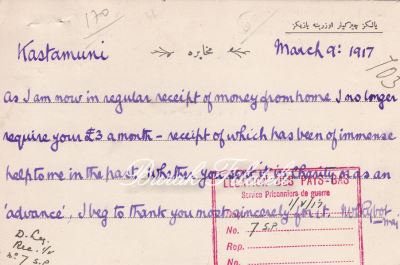 170
يالكز چيزكيلر اوزرينه يازيكز
Kastamuni
مخابره
March 9: 1917
703
As I am now in regular receipt of money from home I no longer
require your £3 a month – receipt of which has been of immense
help to me in the past. Whether you sent it in charity or as an
'advance', I beg to thank you most sincerely for it.
Maj.
PAYS-BAS
Service Prisonniers de guerre
1/V/17
No. 7 S.P.
Rep.
No.
No.
D. Leg.
Rec. 1/V
No 7 S.P.